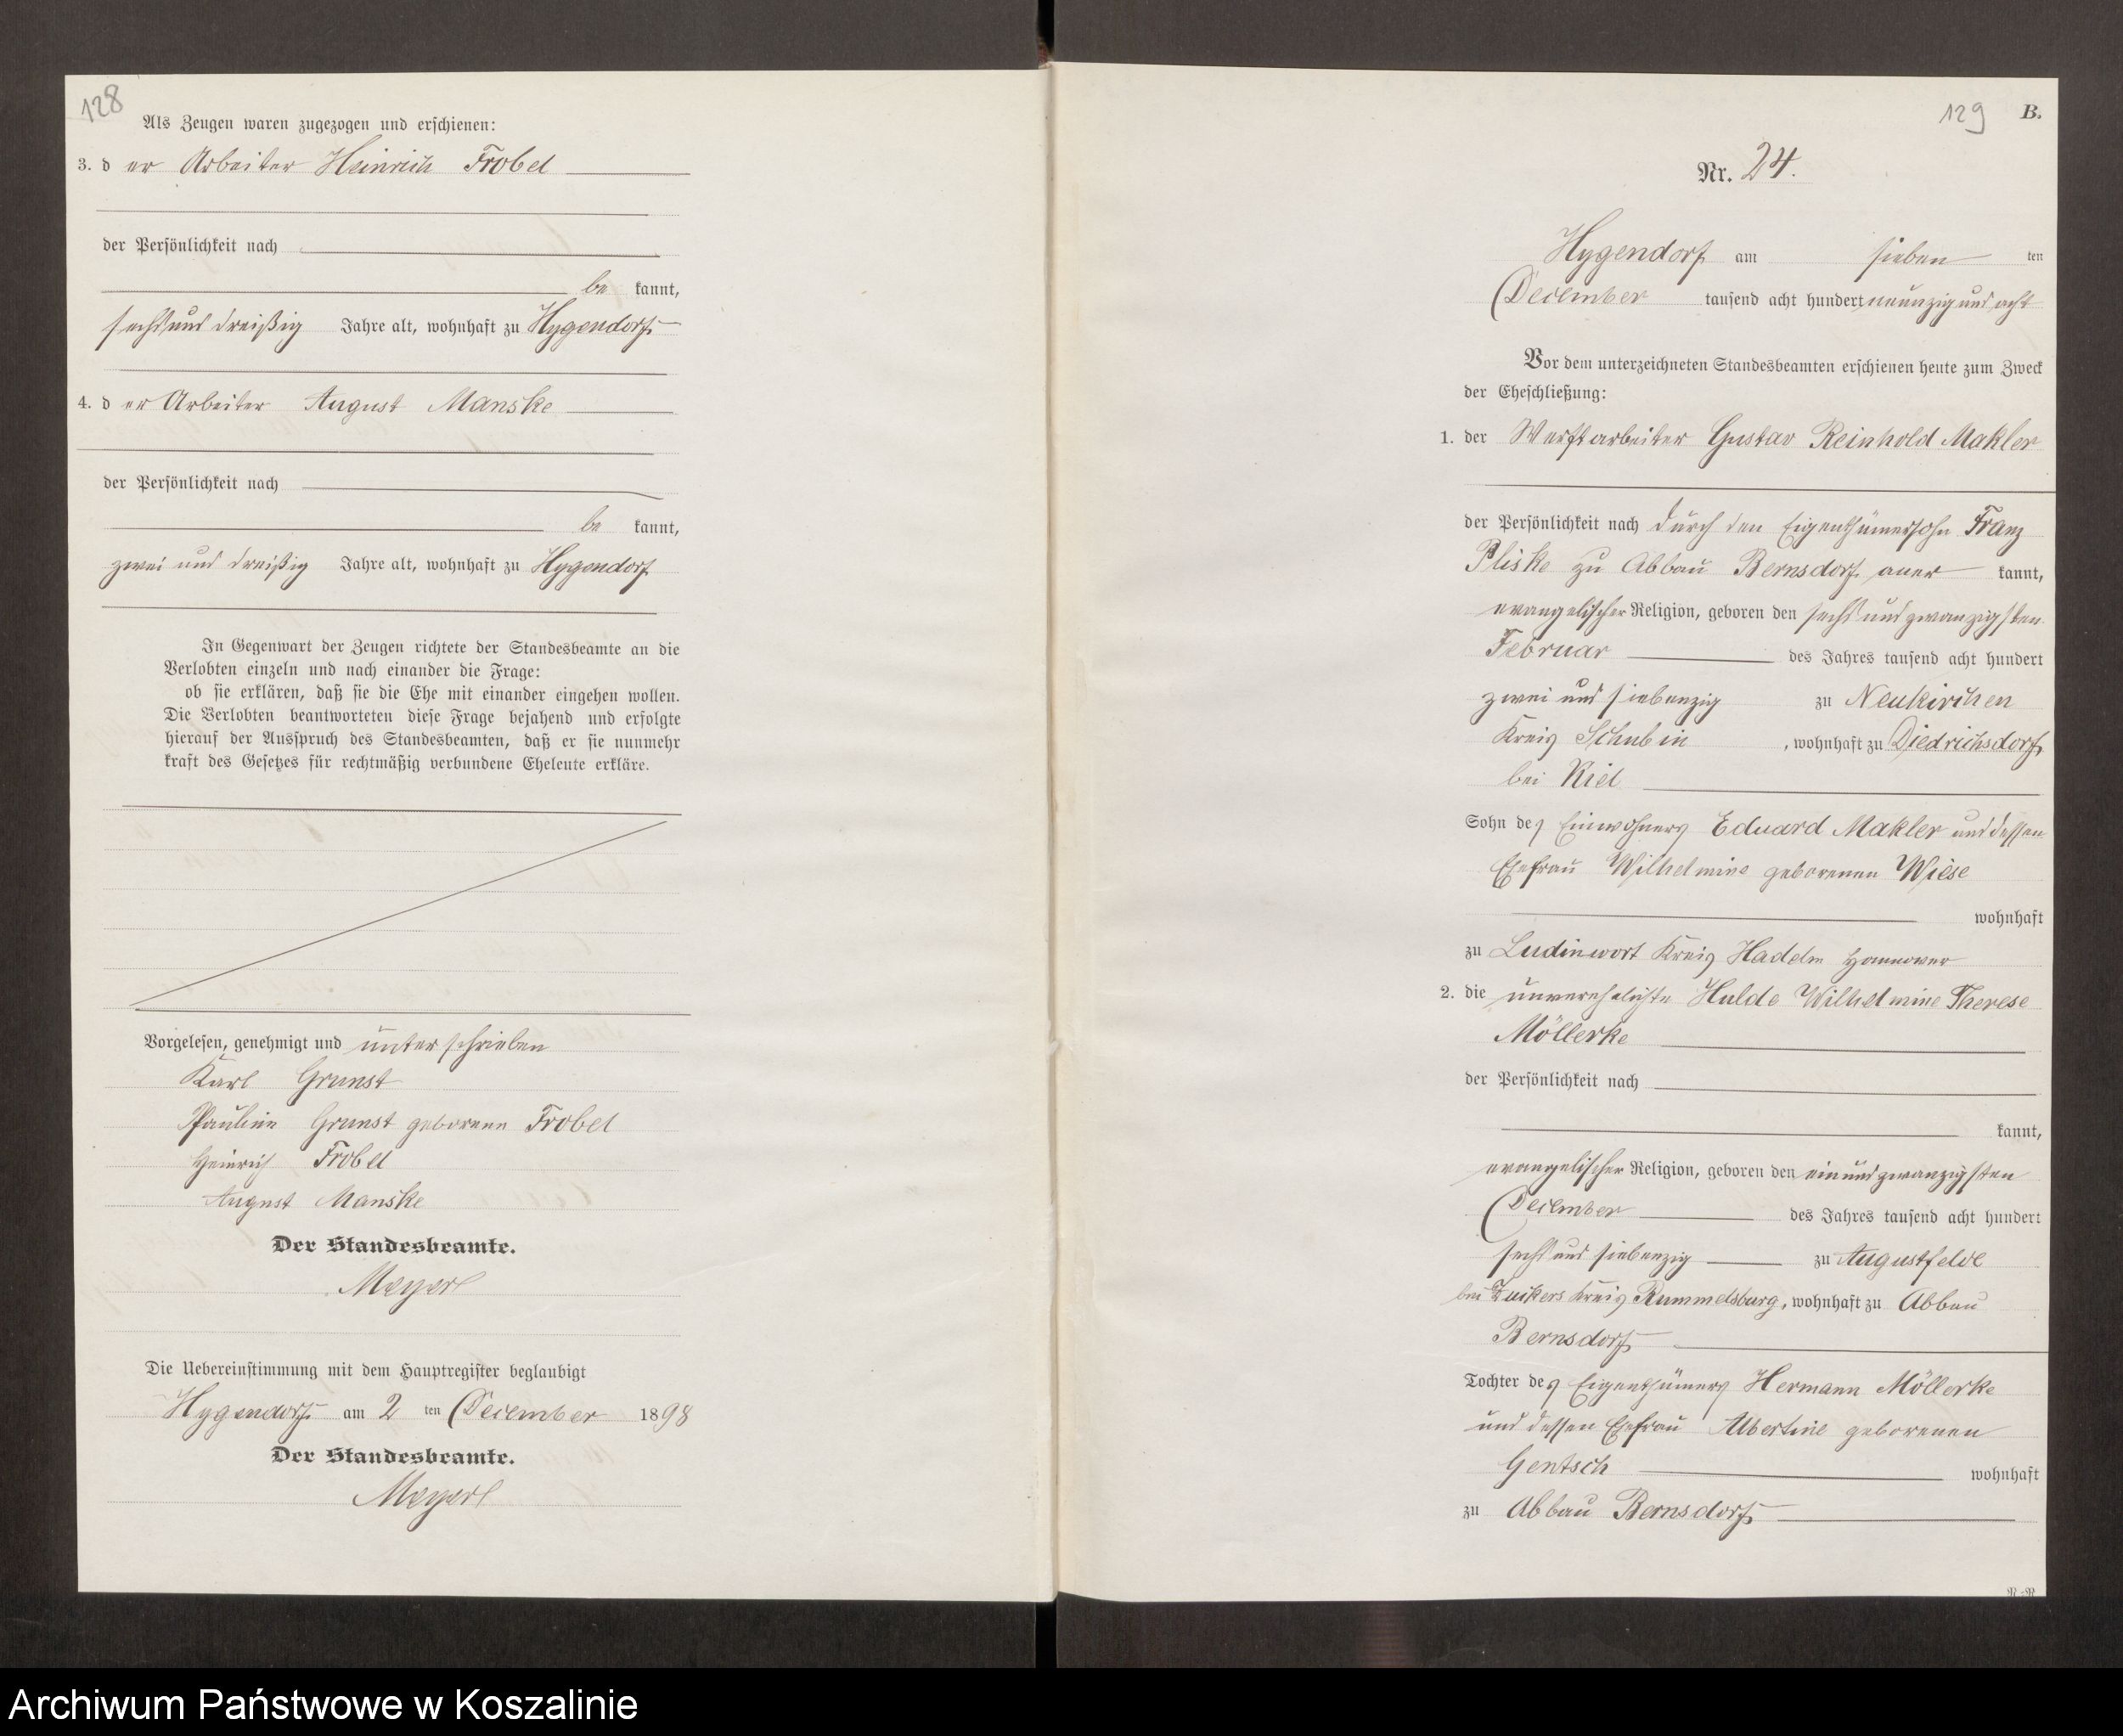 128
Als Zeugen waren zugezogen und erschienen:
3. d er Arbeiter Heinrich Frobel
der Persönlichkeit nach
be kannt,
sechsund dreißig Jahre alt, wohnhaft zu Hygendorf
4. d er Arbeiter August Manske
der Persönlichkeit nach
be kannt,
zwei und dreißig Jahre alt, wohnhaft zu Hygendorf
In Gegenwart der Zeugen richtete der Standesbeamte an die
Verlobten einzeln und nach einander die Frage:
ob sie erklären, daß sie die Ehe mit einander eingehen wollen.
Die Verlobten beantworteten diese Frage bejahend und erfolgte
hierauf der Ausspruch des Standesbeamten, daß er sie nunmehr
kraft des Gesetzes für rechtmäßig verbundene Eheleute erkläre.
Vorgelesen, genehmigt und unterschrieben
Karl Grunst
Pauline Grunst geborene Frobel
Heinrich Frobel
August Manske
Der Standesbeamte.
Meyer
Die Uebereinstimmung mit dem Hauptregister beglaubigt
Hygendorf am 2 ten December 1898
Der Standesbeamte.
Meyer
129 B.
Nr. 24.
Hygendorf am sieben ten
December tausend acht hundert neunzig und acht
Vor dem unterzeichneten Standesbeamten erschienen heute zum Zweck
der Eheschließung:
1. der Werftarbeiter Gustav Reinhold Makler
der Persönlichkeit nach durch den Eigenthümersohn Franz
Pliske zu Abbau Bernsdorf aner kannt,
evangelischer Religion, geboren den sechsundzwanzigsten
Februar des Jahres tausend acht hundert
zwei und siebenzig zu Neukirchen
Kreis Schubin, wohnhaft zu Diedrichsdorf
bei Kiel
Sohn des Einwohners Eduard Makler und dessen
Ehefrau Wilhelmine geborenen Wiese
wohnhaft
zu Ludinwort Kreis Hadeln Hannover
2. die unverehelichte Hulde Wilhelmine Therese
Möllerke
der Persönlichkeit nach
kannt,
evangelischer Religion, geboren den einundzwanzigsten
December des Jahres tausend acht hundert
sechs und siebenzig zu Augustfelde
bei Zuckers Kreis Rummelsburg, wohnhaft zu Abbau
Bernsdorf
Tochter des Eigenthümers Hermann Möllerke
und dessen Ehefrau Albertine geborenen
Gentsch wohnhaft
zu Abbau Bernsdorf
Archiwum Państwowe w Koszalinie